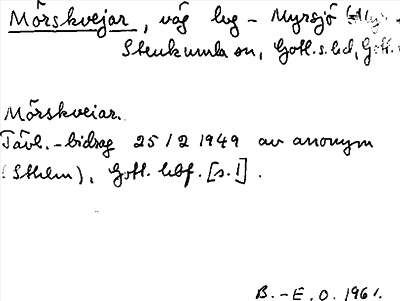 Mörskvejar, väg lvg - Myrsjö
Stenkumla sn, Gotl. s. hd, Gotl.
Mörskveiar.
Tävl.-bidrag 25/2 1949 av anonym
(Sthlm), Gotl. hbf. [s. 1].
B.-E. O. 1961.